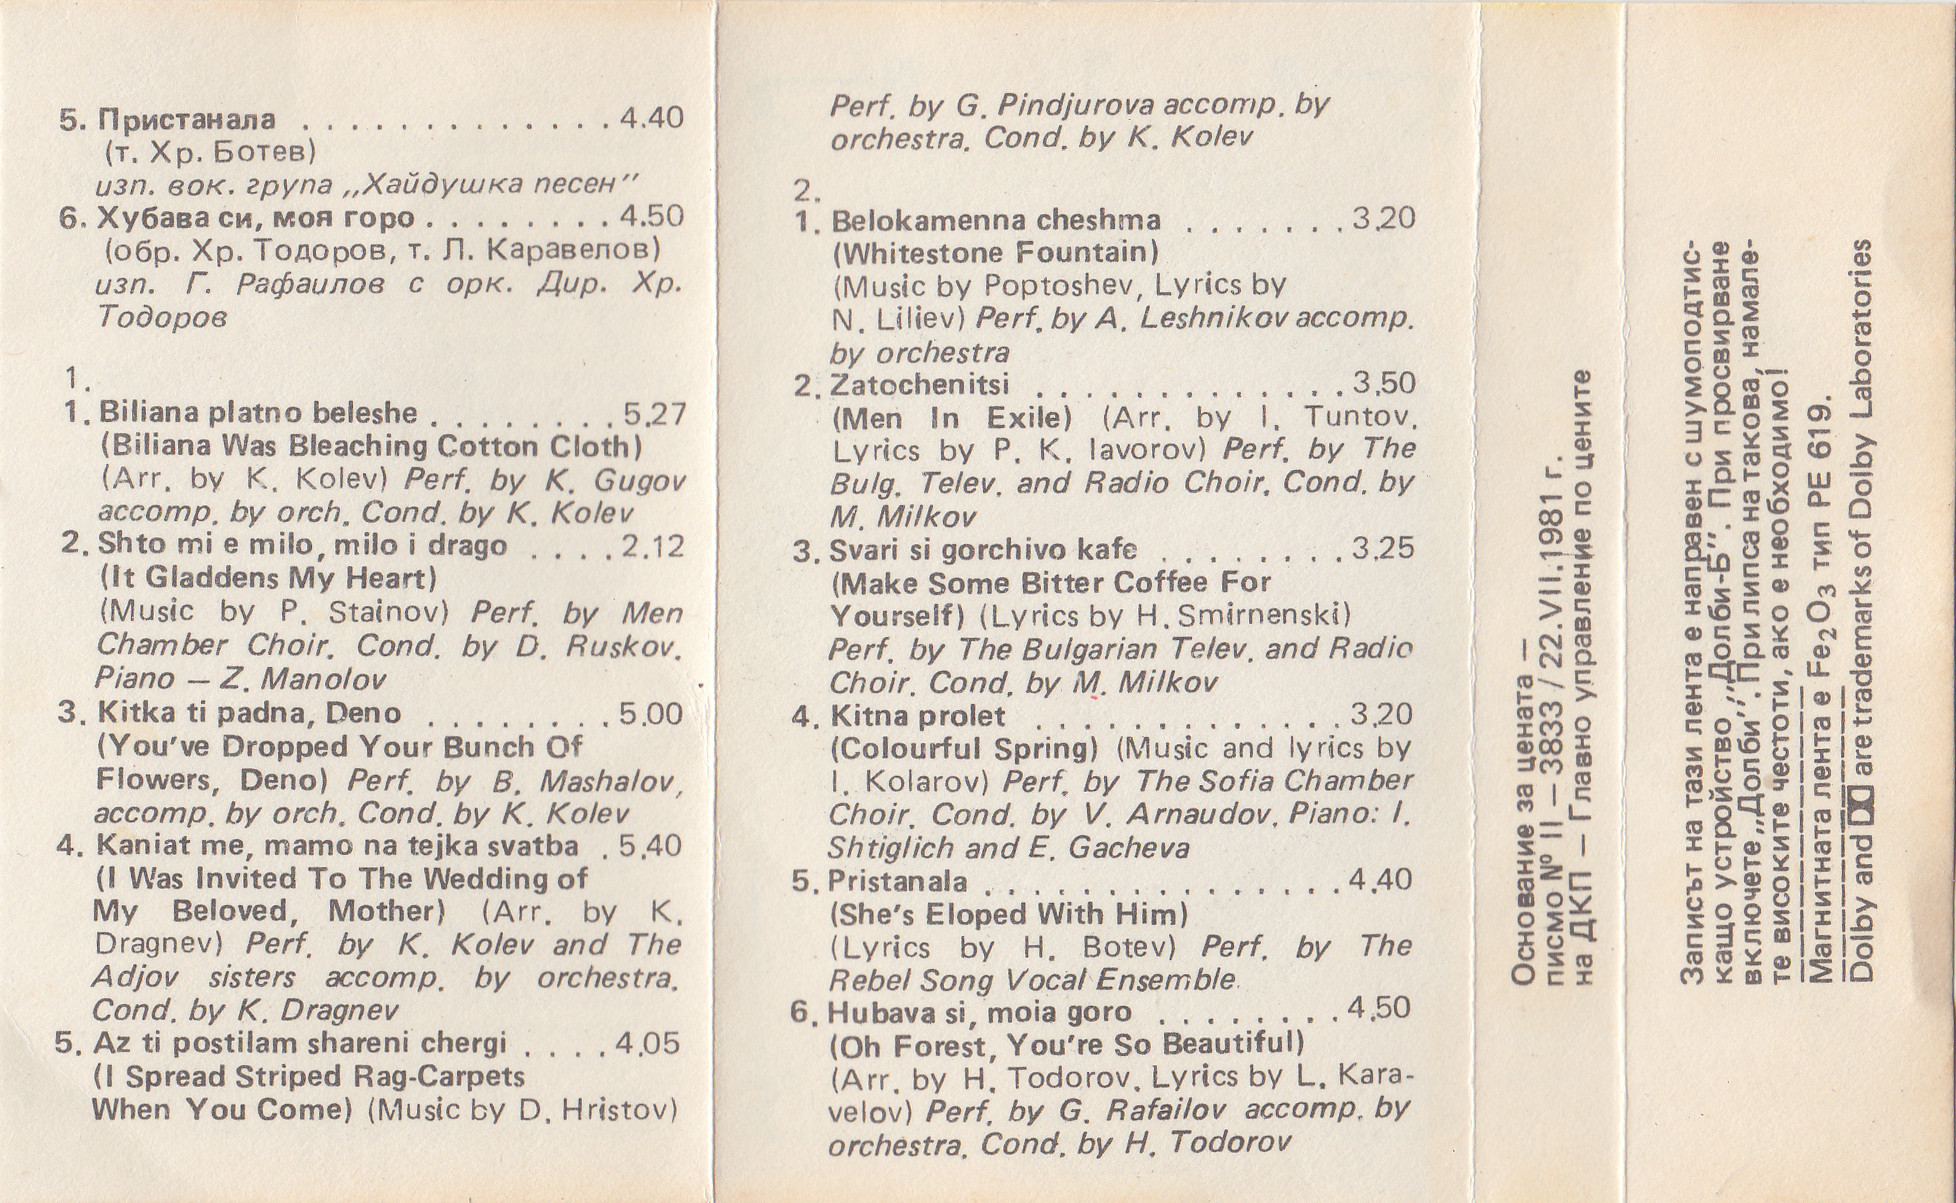 5. Пристанала . . . . . . . . . . . . . 4.40
(т. Хр. Ботев)
изп. вок. група „Хайдушка песен”
6. Хубава си, моя горо . . . . . . . . 4.50
(обр. Хр. Тодоров, т. Л. Каравелов)
изп. Г. Рафаилов с орк. Дир. Хр.
Тодоров
1.
1. Biliana platno beleshe . . . . . . . . 5.27
(Biliana Was Bleaching Cotton Cloth)
(Arr. by K. Kolev) Perf. by K. Gugov
accomp. by orch. Cond. by K. Kolev
2. Shto mi e milo, milo i drago . . . . 2.12
(It Gladdens My Heart)
(Music by P. Stainov) Perf. by Men
Chamber Choir. Cond. by D. Ruskov.
Piano — Z. Manolov
3. Kitka ti padna, Deno . . . . . . . . 5.00
(You've Dropped Your Bunch Of
Flowers, Deno) Perf. by B. Mashalov,
accomp. by orch. Cond. by K. Kolev
4. Kaniat me, mamo na tejka svatba . 5.40
(I Was Invited To The Wedding of
My Beloved, Mother) (Arr. by K.
Dragnev) Perf. by K. Kolev and The
Adjov sisters accomp. by orchestra.
Cond. by K. Dragnev
5. Az ti postilam shareni chergi . . . . 4.05
(I Spread Striped Rag-Carpets
When You Come) (Music by D. Hristov)
Perf. by G. Pindjurova accomp. by
orchestra. Cond. by K. Kolev
2.
1. Belokamenna cheshma . . . . . . . 3.20
(Whitestone Fountain)
(Music by Poptoshev, Lyrics by
N. Liliev) Perf. by A. Leshnikov accomp.
by orchestra
2. Zatochenitsi . . . . . . . . . . . . . 3.50
(Men In Exile) (Arr. by I. Tuntov.
Lyrics by P. K. Iavorov) Perf. by The
Bulg. Telev. and Radio Choir. Cond. by
M. Milkov
3. Svari si gorchivo kafe . . . . . . . . 3.25
(Make Some Bitter Coffee For
Yourself) (Lyrics by H. Smirnenski)
Perf. by The Bulgarian Telev. and Radio
Choir. Cond. by M. Milkov
4. Kitna prolet . . . . . . . . . . . . . 3.20
(Colourful Spring) (Music and lyrics by
I. Kolarov) Perf. by The Sofia Chamber
Choir. Cond. by V. Arnaudov. Piano: I.
Shtiglich and E. Gacheva
5. Pristanala . . . . . . . . . . . . . . . 4.40
(She's Eloped With Him)
(Lyrics by H. Botev) Perf. by The
Rebel Song Vocal Ensemble.
6. Hubava si, moia goro . . . . . . . . 4.50
(Oh Forest, You're So Beautiful)
(Arr. by H. Todorov. Lyrics by L. Kara-
velov) Perf. by G. Rafailov accomp. by
orchestra. Cond. by H. Todorov
Основание за цената —
писмо № II — 3833 / 22.VII.1981 г.
на ДКП — Главно управление по цените
Записът на тази лента е направен с шумоподтис-
кащо устройство „Долби-Б”. При просвирване
включете „Долби”. При липса на такова, намале-
те високите честоти, ако е необходимо!
Магнитната лента е Fe2O3 тип PE 619.
Dolby and are trademarks of Dolby Laboratories